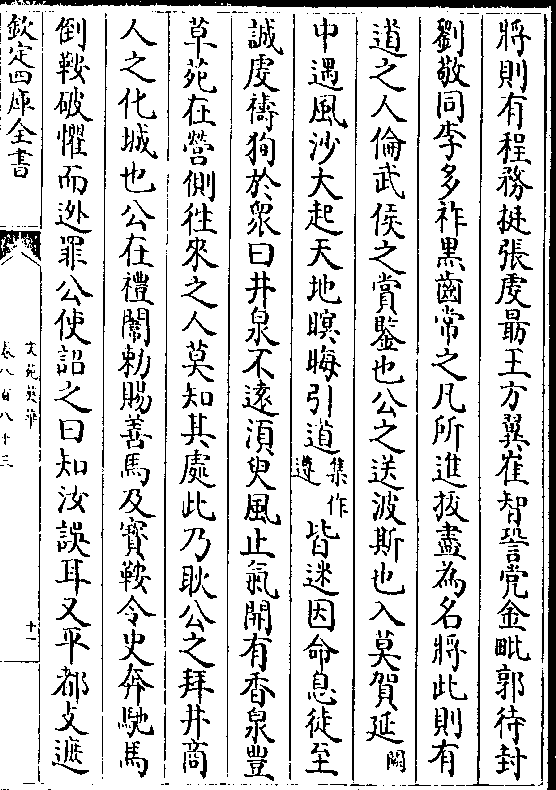 將則有程務挺張虔勗王方翼崔智䛒党金毗郭待封
劉敬同李多祚黑齒常之凡所進拔盡為名將此則有
道之人倫武侯之賞鑒也公之送波斯也入莫賀延闕
中遇風沙大起天地暝晦引道集作遵皆迷因命息徒至
誠虔禱狥於衆曰井泉不逺湏臾風止氣開有香泉豐
草苑在營側徃來之人莫知其處此乃耿公之拜井商
人之化城也公在禮闈勅賜善馬及寳鞍令史奔馳馬
倒鞍破懼而迯罪公使詔之曰知汝誤耳又平都攴遮
欽定四庫全書
文苑英華
卷八百八十三
十一